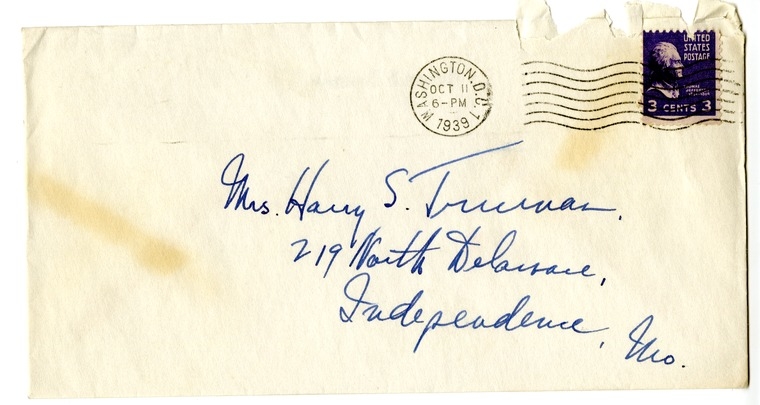 WASHINGTON, D.C. 1
OCT 11
6-PM
1939
UNITED
STATES
POSTAGE
THOMAS
JEFFERSON
3 CENTS 3
Mrs. Harry S. Truman.
219 North Delaware,
Independence, Mo.